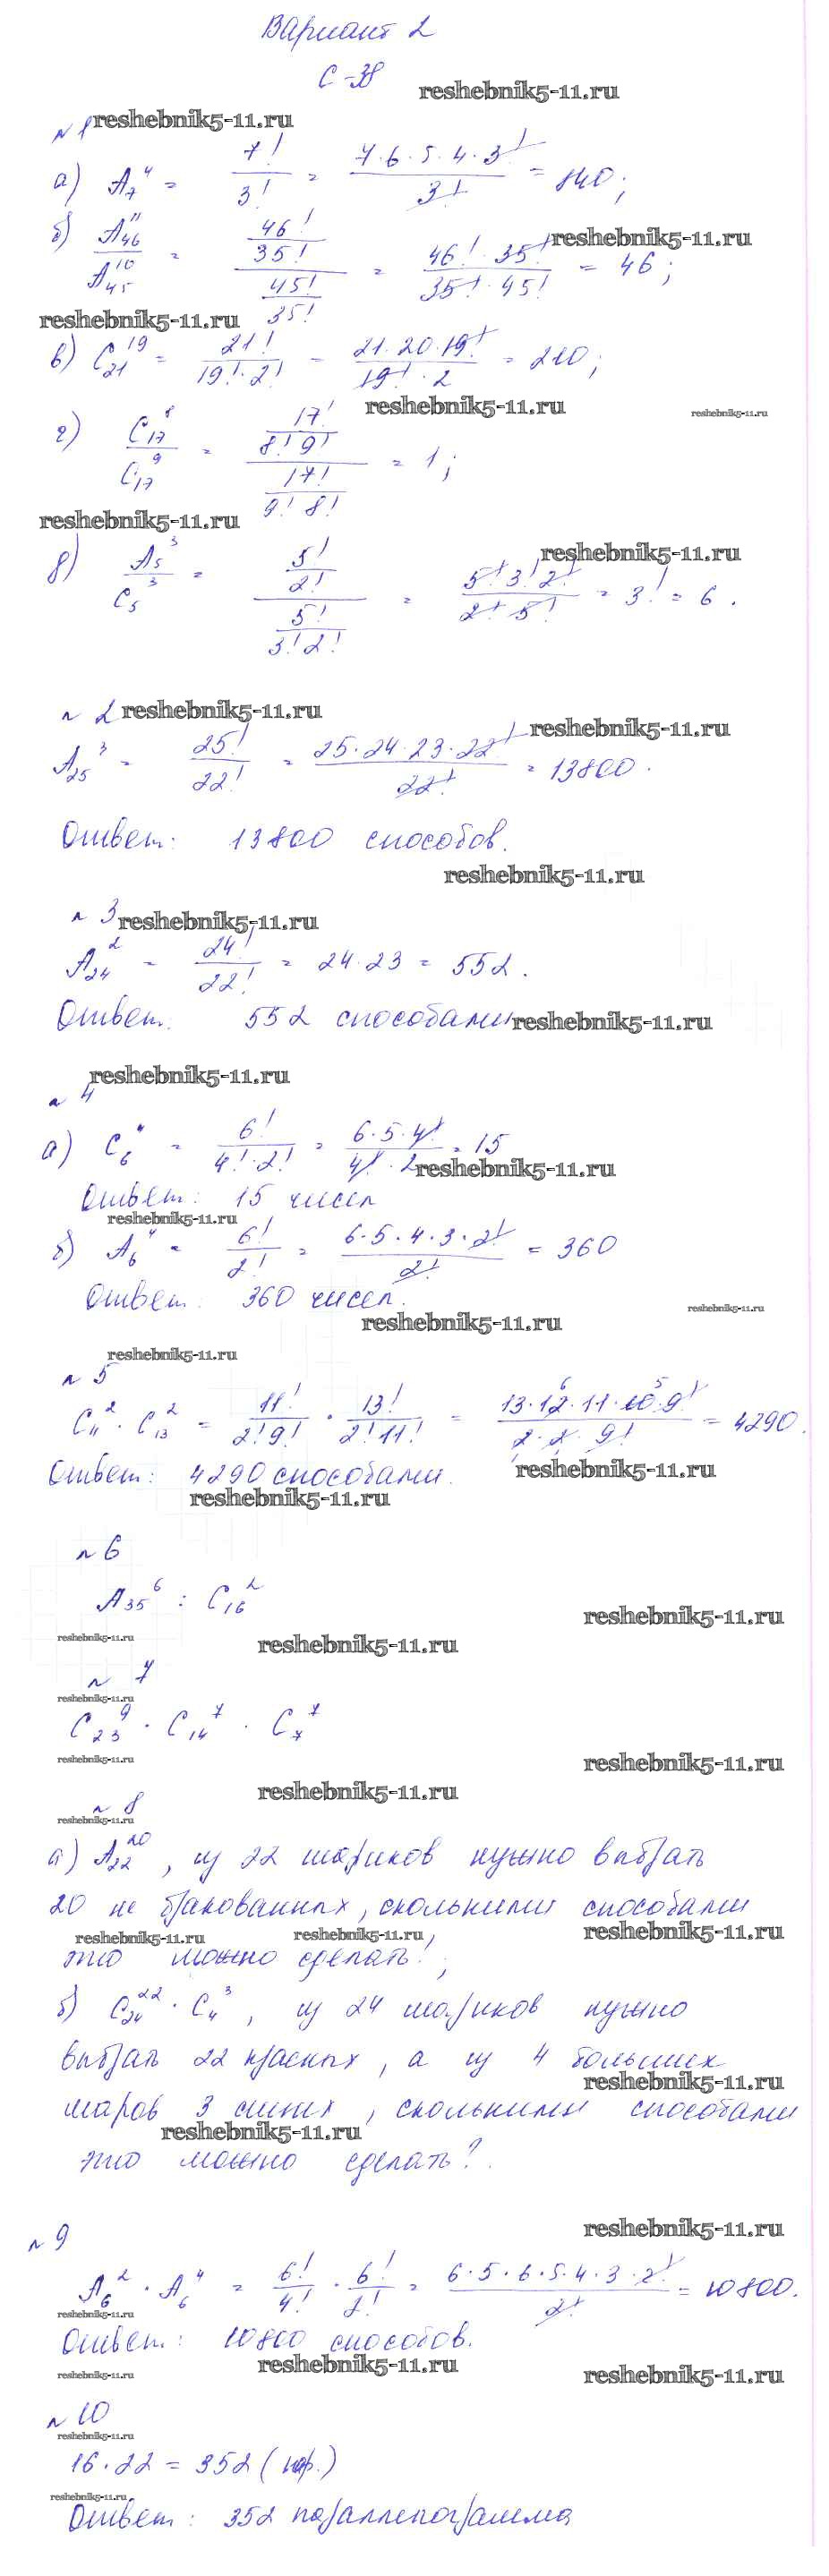 Вариант 2
С-38
reshebnik5-11.ru
№1 reshebnik5-11.ru
а) A₇⁴ = 7!/3! = 7·6·5·4·3!/3! = 840;
б) A₄₆¹¹/A₄₅¹⁰ = (46!/35!)/(45!/35!) = 46!·35!/35!·45! = 46;
reshebnik5-11.ru
reshebnik5-11.ru
в) C₂₁¹⁹ = 21!/19!·2! = 21·20·19!/19!·2 = 210;
reshebnik5-11.ru
reshebnik5-11.ru
г) C₁₇⁸/C₁₇⁹ = (17!/8!9!)/(17!/9!8!) = 1;
reshebnik5-11.ru
reshebnik5-11.ru
д) A₅³/C₅³ = (5!/2!)/(5!/3!2!) = 5!3!2!/2!5! = 3! = 6.
№2 reshebnik5-11.ru
reshebnik5-11.ru
A₂₅³ = 25!/22! = 25·24·23·22!/22! = 13800.
Ответ: 13800 способов.
reshebnik5-11.ru
№3 reshebnik5-11.ru
A₂₄² = 24!/22! = 24·23 = 552.
Ответ: 552 способами reshebnik5-11.ru
reshebnik5-11.ru
№4
а) C₆⁴ = 6!/4!·2! = 6·5·4!/4!·2 = 15
reshebnik5-11.ru
Ответ: 15 чисел
reshebnik5-11.ru
б) A₆⁴ = 6!/2! = 6·5·4·3·2!/2! = 360
Ответ: 360 чисел.
reshebnik5-11.ru
reshebnik5-11.ru
reshebnik5-11.ru
№5
C₁₁² · C₁₃² = 11!/2!9! · 13!/2!11! = 13·12·11·10·9!/2·2·9! = 4290.
Ответ: 4290 способами.
reshebnik5-11.ru
reshebnik5-11.ru
№6
A₃₅⁶ : C₁₆²
reshebnik5-11.ru
reshebnik5-11.ru
reshebnik5-11.ru
№7
reshebnik5-11.ru
C₂₃⁹ · C₁₄⁷ · C₇⁷
reshebnik5-11.ru
reshebnik5-11.ru
reshebnik5-11.ru
№8
reshebnik5-11.ru
а) A₂₂²⁰, из 22 шариков нужно выбрать
20 не бракованных, сколькими способами
reshebnik5-11.ru reshebnik5-11.ru reshebnik5-11.ru
это можно сделать?;
б) C₂₄²² · C₄³, из 24 шариков нужно
выбрать 22 красных, а из 4 больших
reshebnik5-11.ru
шаров 3 синих, сколькими способами
reshebnik5-11.ru
это можно сделать?.
reshebnik5-11.ru
№9
A₆² · A₆⁴ = 6!/4! · 6!/2! = 6·5·6·5·4·3·2!/2! = 10800.
reshebnik5-11.ru
Ответ: 10800 способов.
reshebnik5-11.ru
reshebnik5-11.ru
reshebnik5-11.ru
№10
reshebnik5-11.ru
16·22 = 352 (пар.)
reshebnik5-11.ru
Ответ: 352 параллелограмма